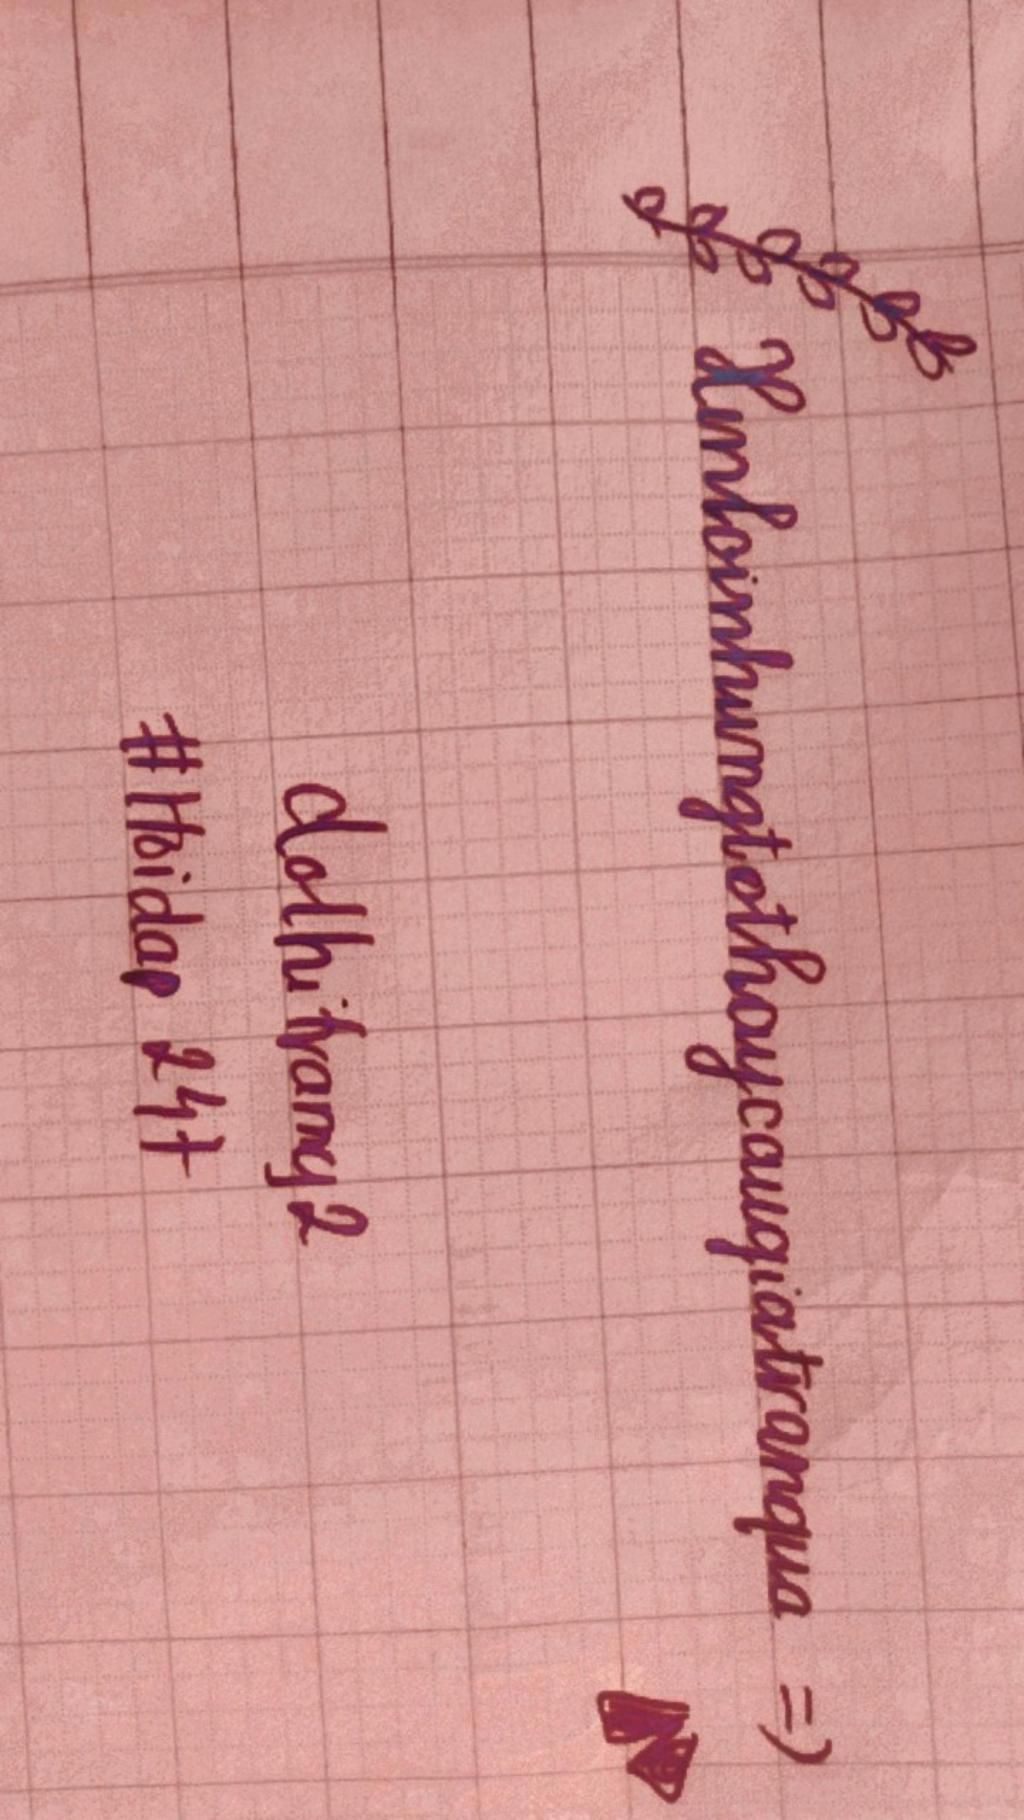 Xinloinhungtothaycaugiatranqua =)
dothitramy2
#Hoidap 247